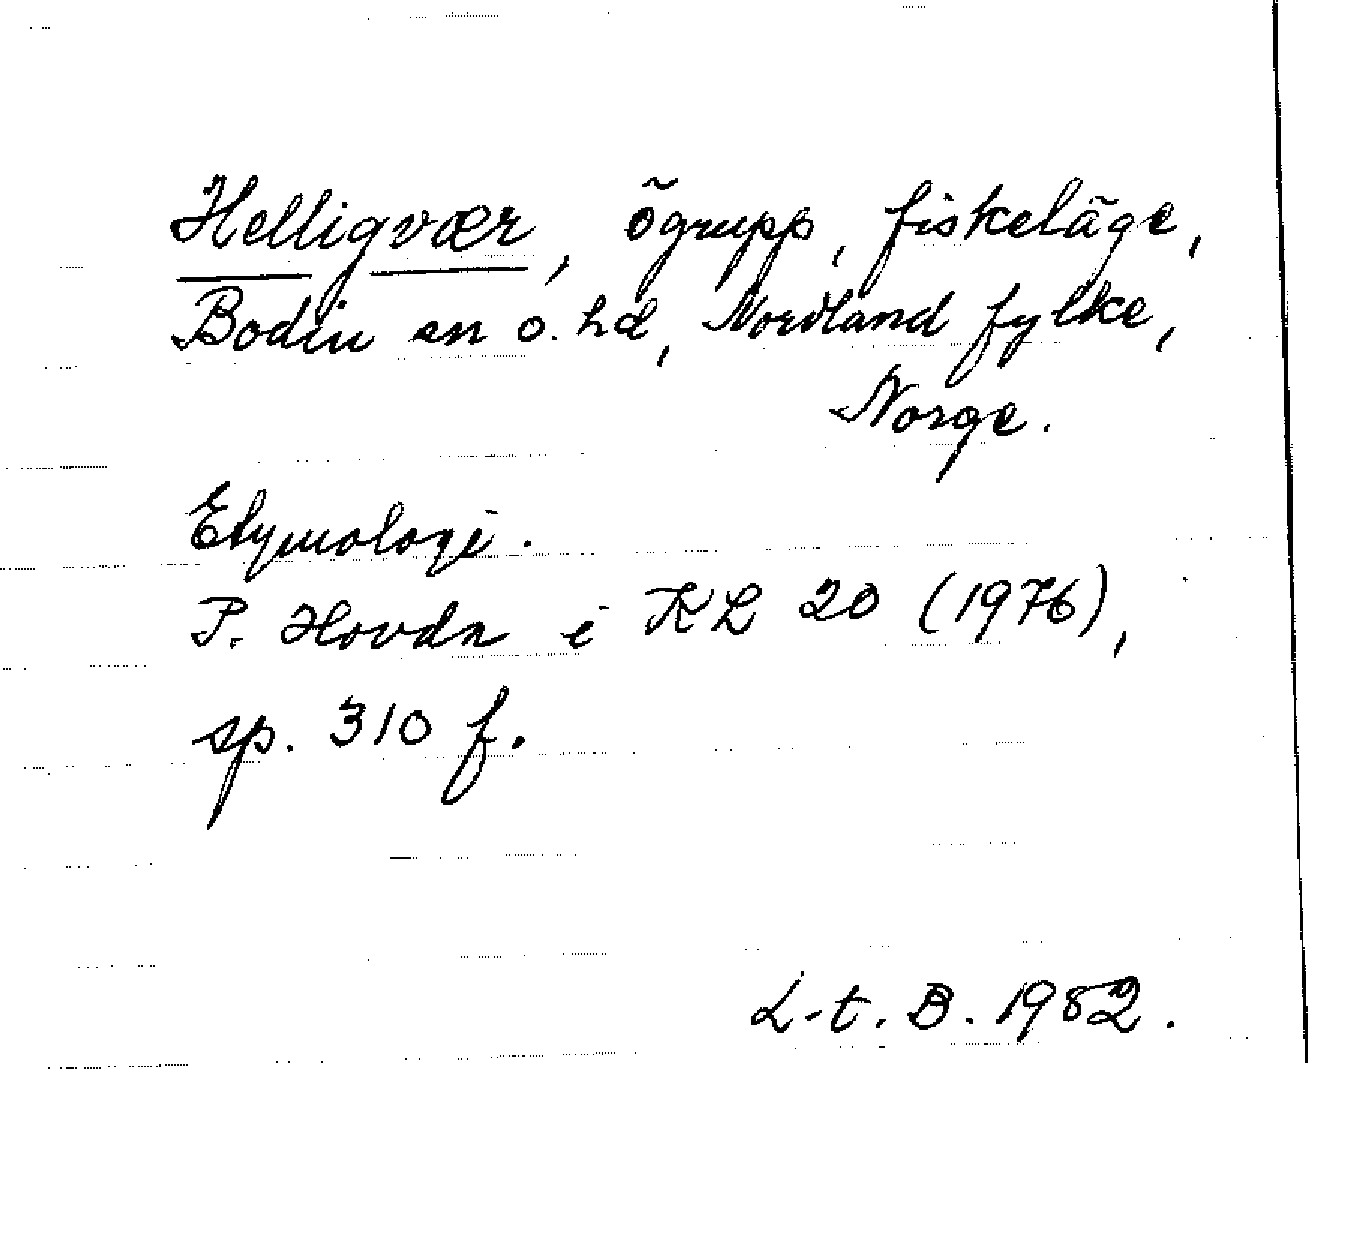 Helligvær, ögrupp, fiskeläge,
Bodin sn o. hd, Nordland fylke,
Norge.
Etymologi.
P. Hovda i KL 20 (1976),
sp. 310 f.
L-t. B. 1982.